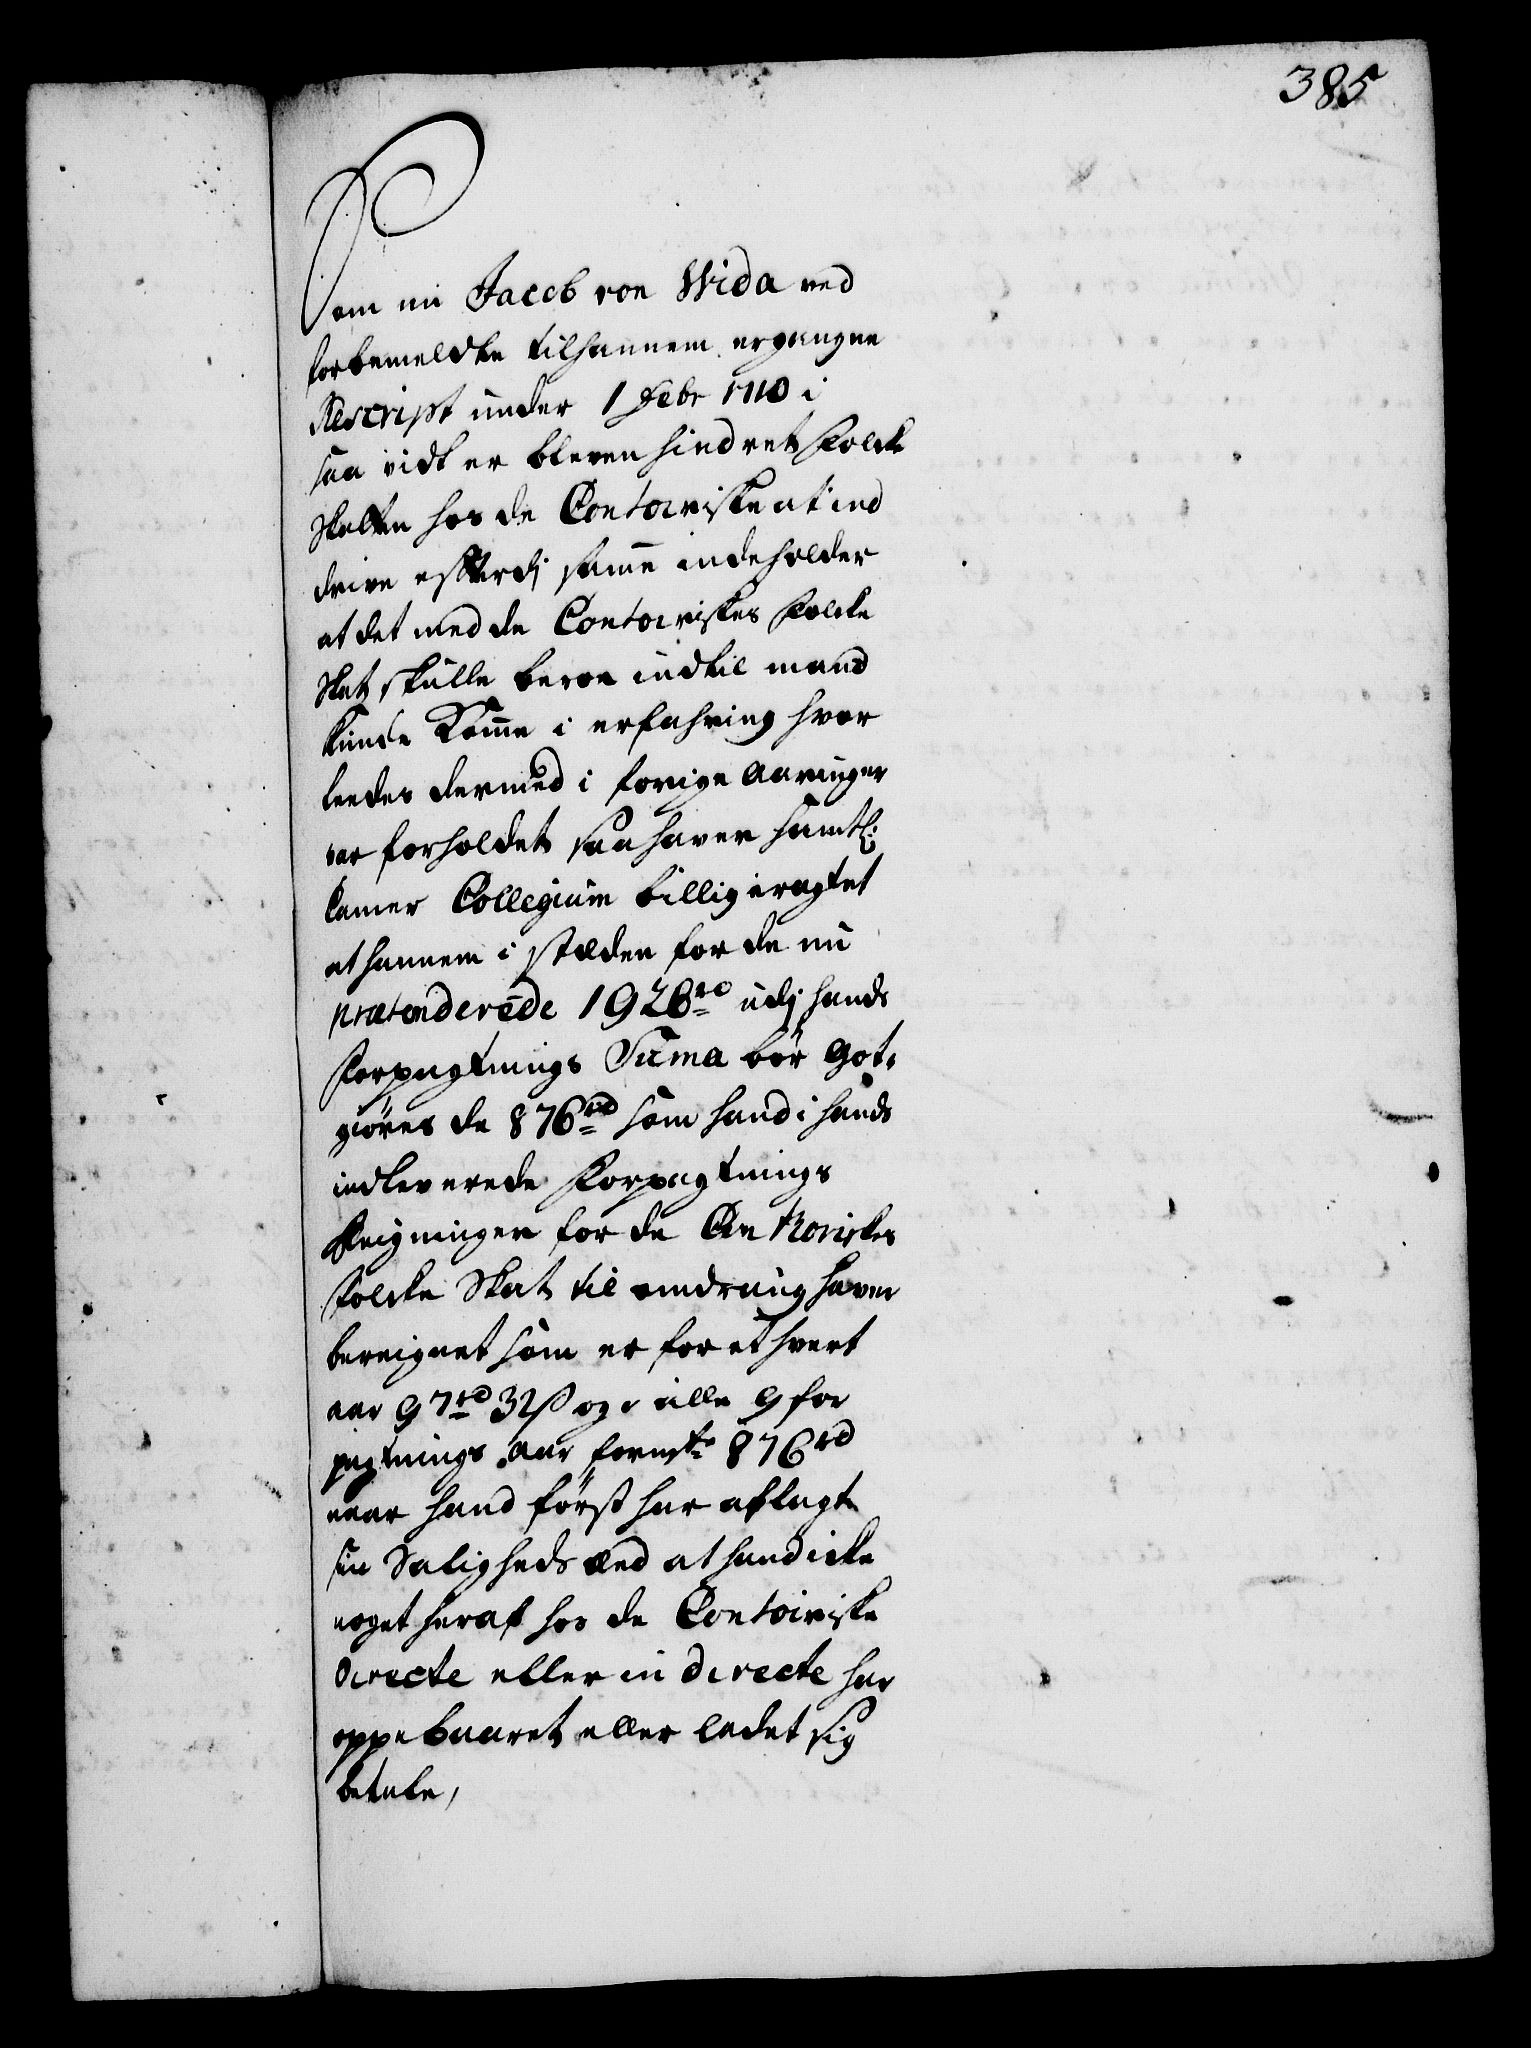 385
Som nu Jacob von Wida ved
forbemeldte til hannem ergangne
Rescript under 1 Febr 1710 i
saa vidt er bleven hindret Folcke
Skatten hos de Contoiriske at ind
drive efterdj samme indeholder
at det med de Contoiriskes Folcke
Skat skulle beroe indtil mand
kunde Komme i erfahring hvor
leedes dermed i forige Aaringer
var forholdet saa haver samtl:
Camer Collegium billig eragtet
at hannem i stæden for de nu
prætenderede 1926 rd udj hands
Forpagtnings Suma bör Got-
giöres de 876 rd som hand i hands
indleverede Forpagtnings
Reigninger for de Contoriskes
Folcke Skat til andrang haver
bereignet som er for et hvert
aar 97 rd 32 ß og i alle 9 for
pagtnings Aar formt 876 rd
naar hand först har aflagt
sin Saligheds æed at hand icke
noget heraf hos de Contoiriske
directe eller in directe har
oppebaaret eller ladet sig
betale,